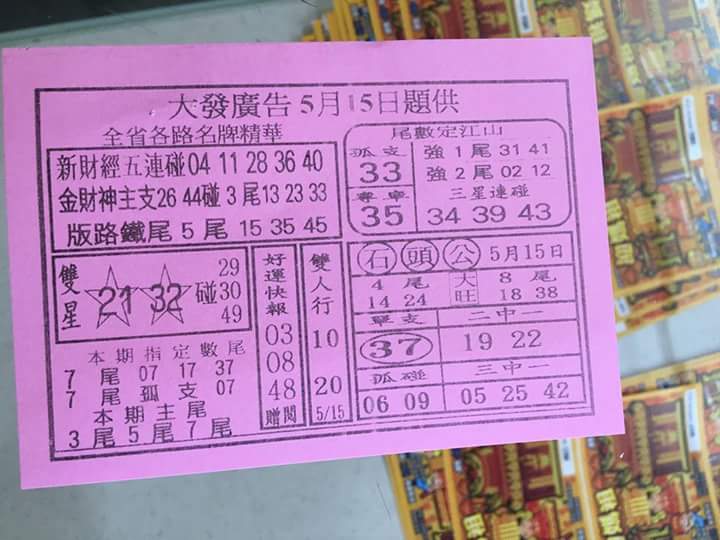 大發廣告5月15日題供
全省各路名牌精華
新財經五連碰04 11 28 36 40
金財神主支26 44碰3尾13 23 33
版路鐵尾5尾 15 35 45
尾數定江山
孤支
33
專車
35
強1尾31 41
強2尾02 12
三星連碰
34 39 43
雙星
21 32
碰
29
30
49
本期指定數尾
7尾07 17 37
7尾孤支07
本期主尾
3尾5尾7尾
好運快報
03
08
48
贈閱
雙人行
10
20
5/15
石頭公 5月15日
4尾
14 24
大旺
8尾
18 38
單支
37
二中一
19 22
孤碰
06 09
三中一
05 25 42